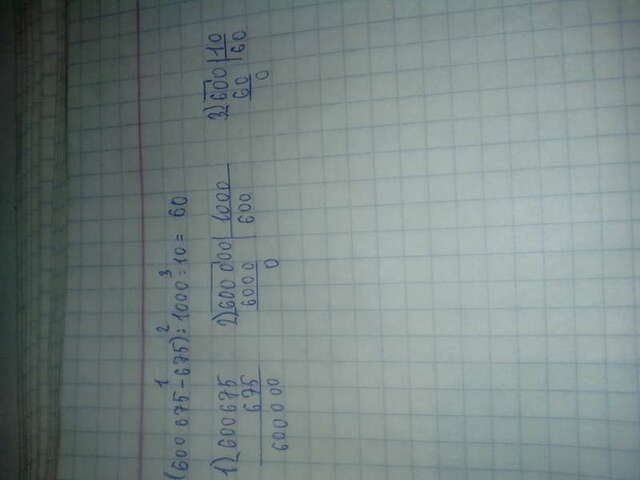 (600 675 - 675) : 1000 : 10 = 60
1 2 3
1) 600675 2) 600 000 | 1000 3) 600 | 10
675 6000 600 60 60
600.000 0 0